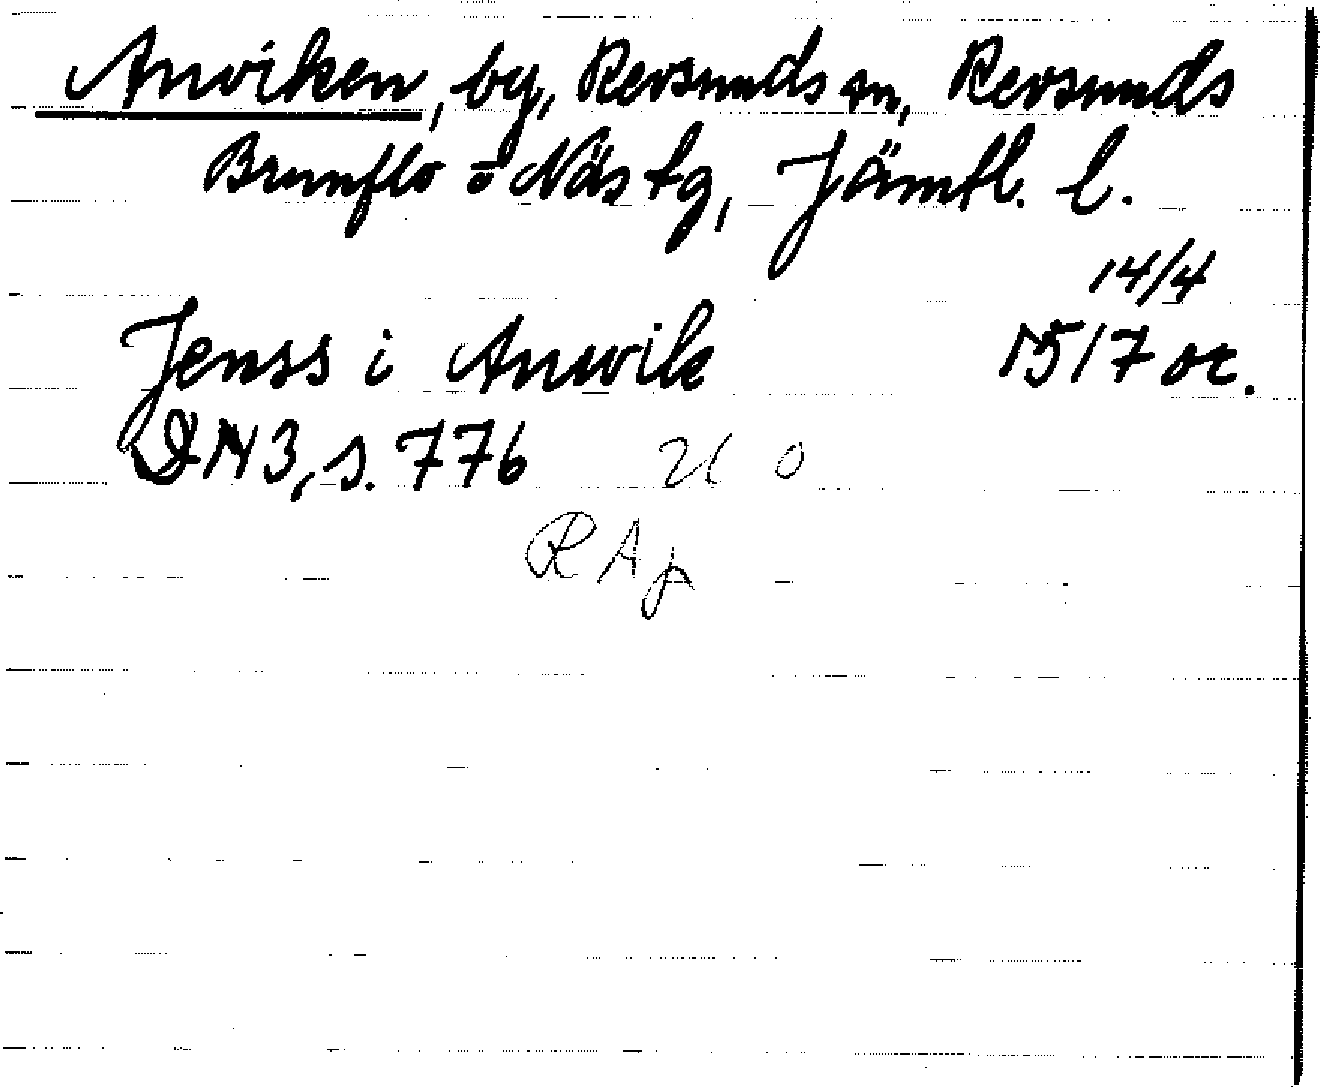 Anviken, by, Revsunds sn, Revsunds
Brunflo o Näs tg, Jämtl. l.
14/4
Jenss i Anwik 1517 or.
DN 3, s. 776
RAp